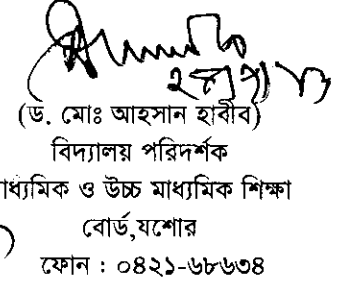 (ড. মোঃ আহসান হাবীব)
বিদ্যালয় পরিদর্শক
মাধ্যমিক ও উচ্চ মাধ্যমিক শিক্ষা
বোর্ড,যশোর
ফোন : ০৪২১-৬৮৬৩৪